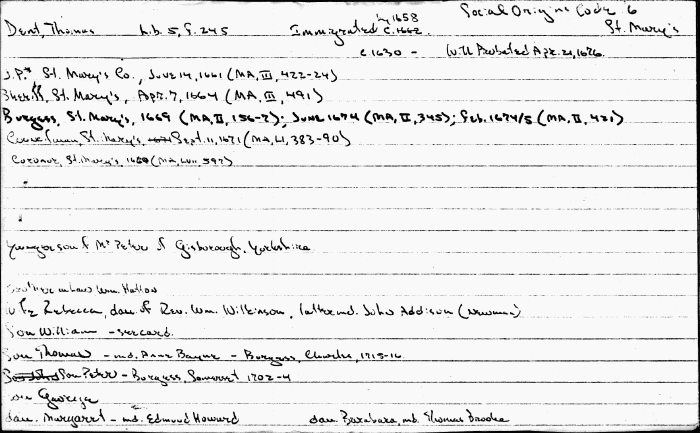 Social Origins Code 6
Dent, Thomas L.b. 5, f. 245 Immigrated by 1658 c. 1662 St. Mary's
c. 1630 - Will Probated Apr. 21, 1676
J.P. St. Mary's Co., June 14, 1661 (MA, III, 422-24)
Sheriff, St. Mary's, Apr. 7, 1664 (MA, III, 491)
Burgess, St. Mary's, 1669 (MA, II, 156-7); June 1674 (MA, II, 345); Feb. 1674/5 (MA, II, 421)
Councilman, St. Mary's, Sept. 11, 1671 (MA, LI, 383-90)
Coroner, St. Mary's, (MA, LVII, 597)
Younger son of Mr Peter of Gisborough, Yorkshire
Brother in law Wm. Hatton
Wife Rebecca, dau. of Rev. Wm. Wilkinson, later md. John Addison (Newman)
Son William - see card.
Son Thomas - md. Anne Bayne - Burgess, Charles, 1715-16
Son Peter - Burgess, Somerset 1702-4
son George
dau. Margaret - md. Edmund Howard dau Barabara, md. Thomas Brooke